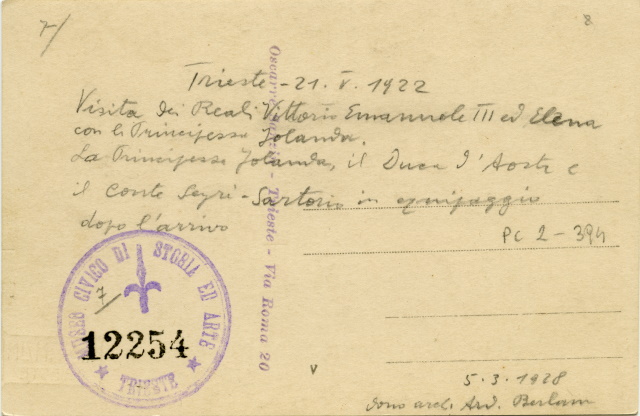 7/
8
Trieste - 21. V. 1922
Visita dei Reali Vittorio Emanuele III ed Elena
con la Principessa Jolanda.
La Principessa Jolanda, il Duca d'Aosta e
il Conte Segrè-Sartorio in equipaggio
dopo l'arrivo
PC 2 - 394
Trieste - Via Roma 20
MUSEO CIVICO DI STORIA ED ARTE
7
12254
TRIESTE
v
5.3.1928
dono arch. Ard. Berlam